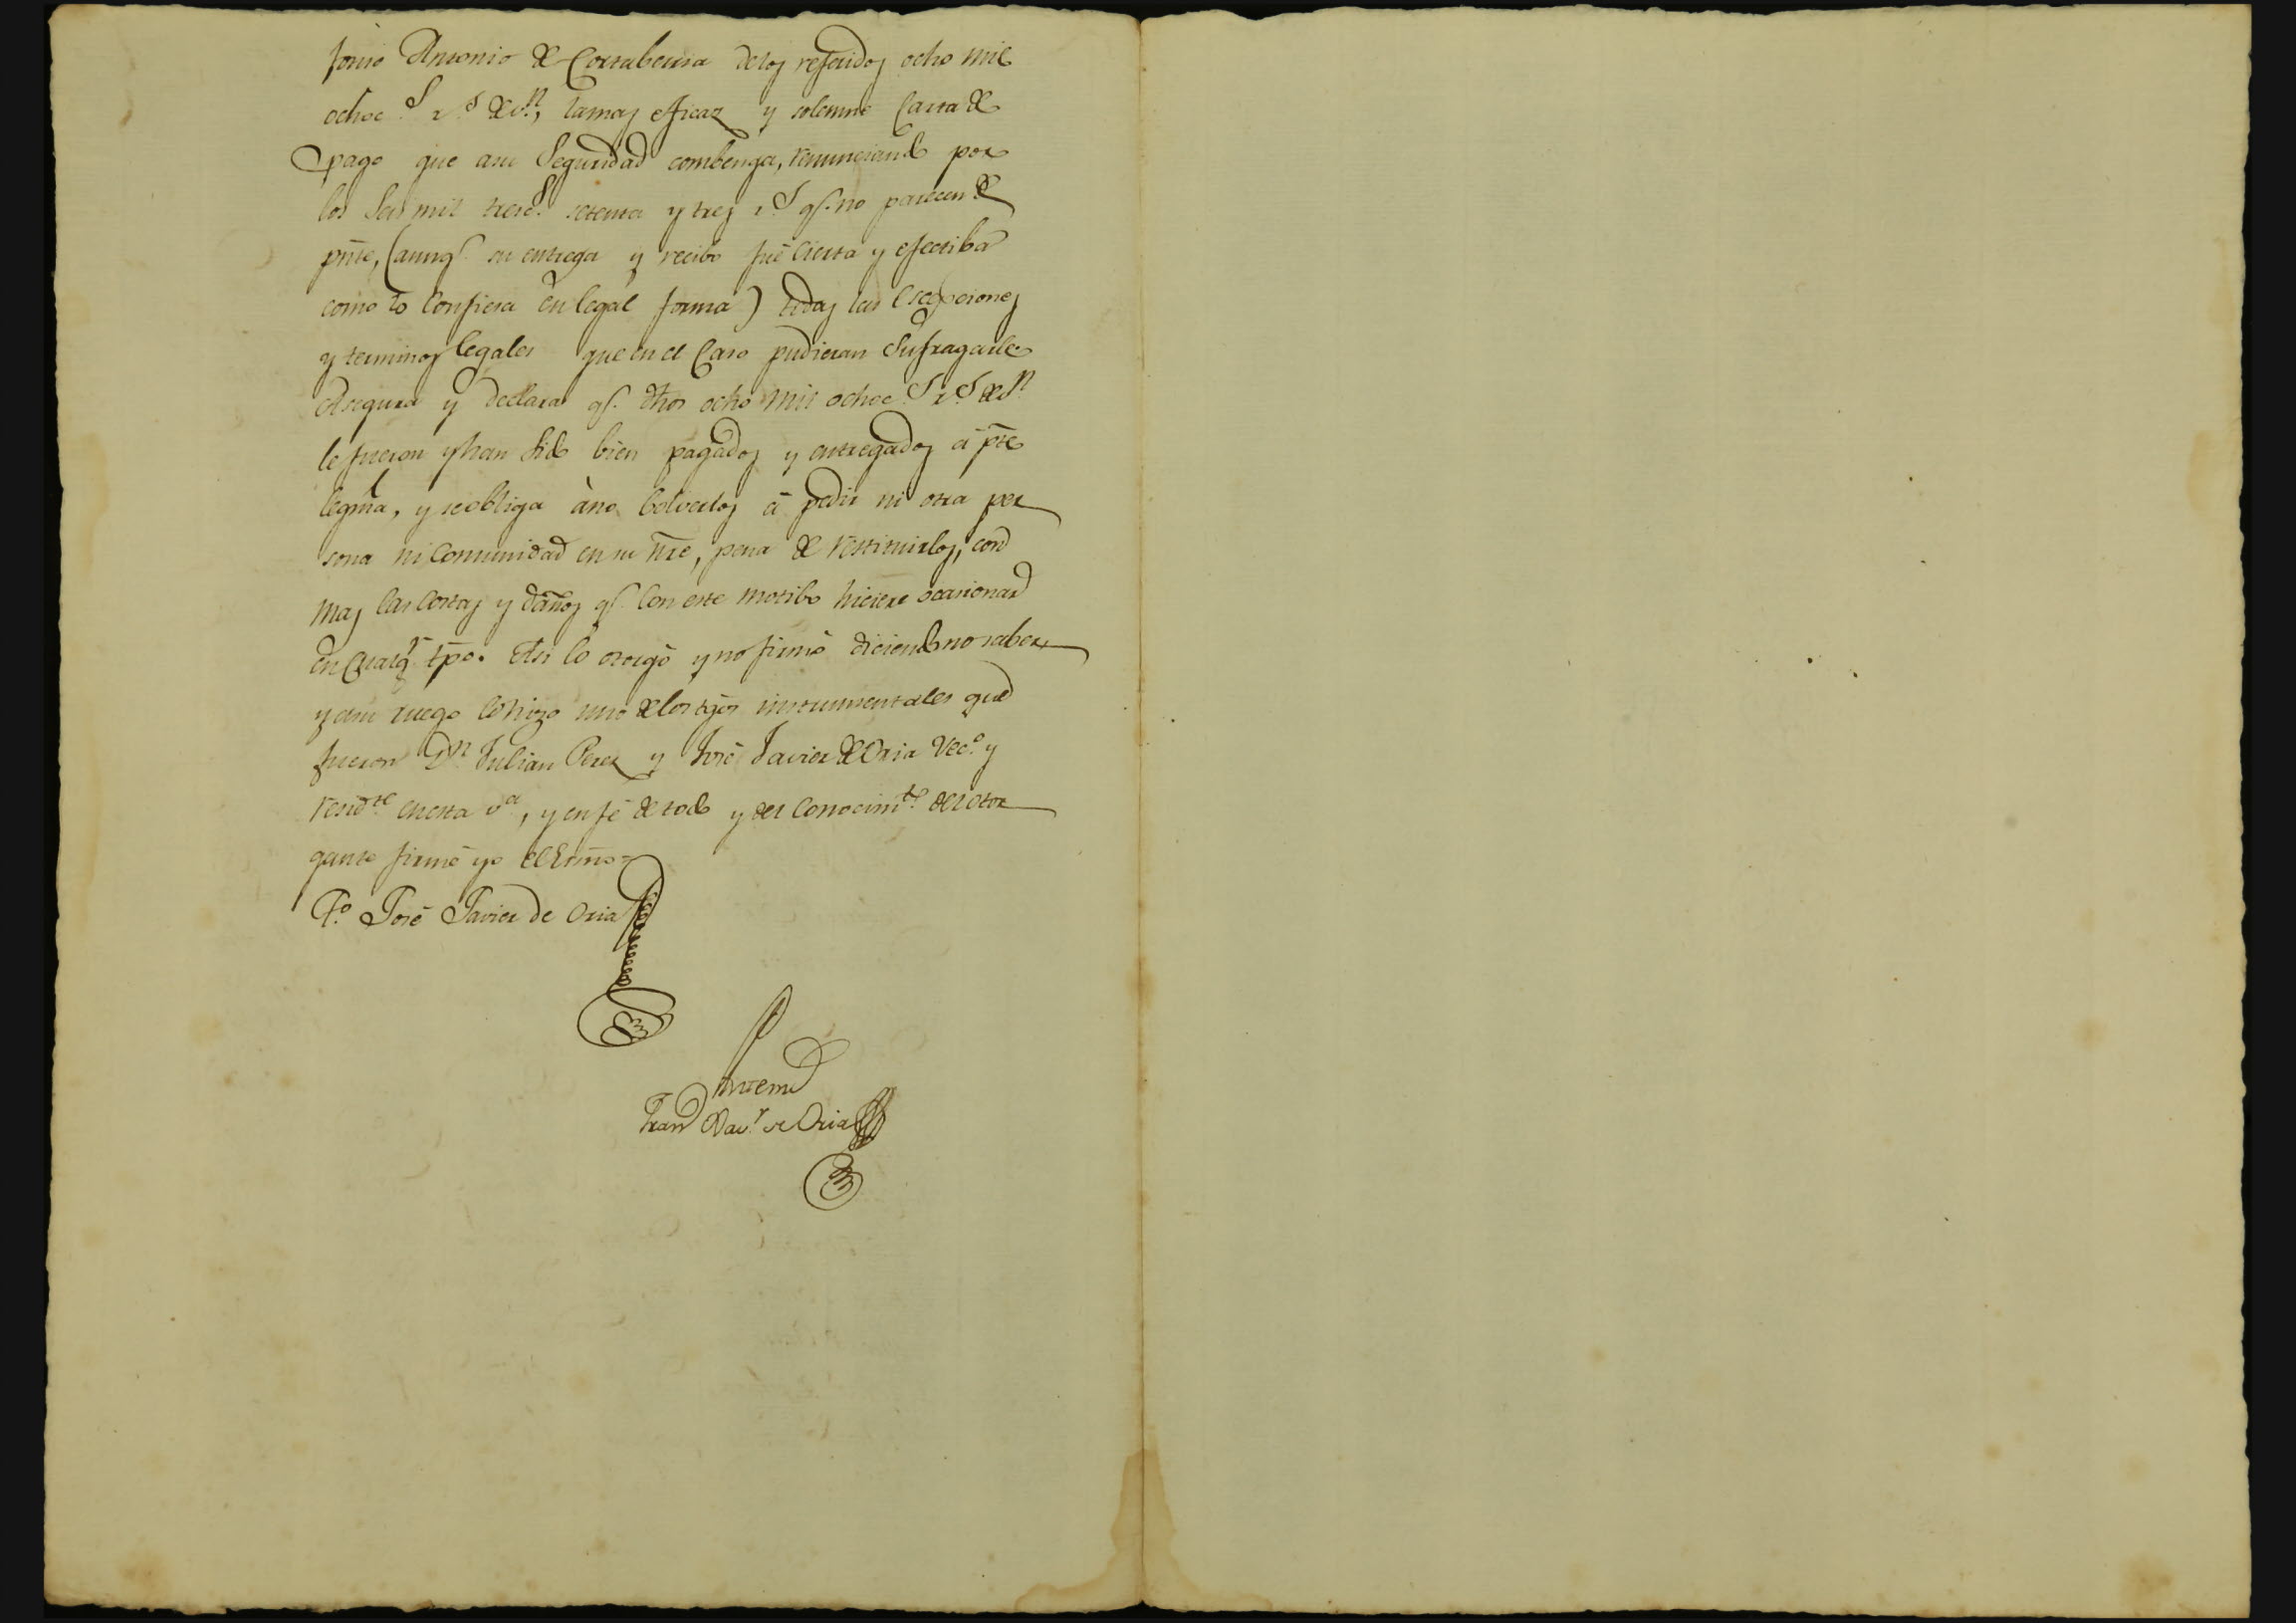 Antonio de Cortaberria delos referidos ocho mil
ochoc.s r.s de v.n, la mas eficaz y solemne Carta de
pago que asu Seguridad combenga, renunciando por
los Seis mil tresc.s setenta y tres r.s q.e no parecen de
pnte, (aunq.e su entrega y recibo fué cierta y efectiba
como lo Confiesa en legal forma) todas las Escepciones
y terminos legales que en el Caso pudieran Sufragarle
Asegura y declara q.e dhos ocho mil ochoc.s r.s de v.n
le fueron y han Sido bien pagados y entregados á pte
legma, y se obliga áno bolverlos á pedir ni otra per
sona ni Comunidad en su nre, pena de restituirlos, con
mas las Costas y daños q.e con este motibo hiciere ocasionar
en qualq.r tpo. Asi lo otorgó y no firmó diciendo no saber,
y asu ruego lo hizo uno de los tgos instrumentales que
fueron D.n Julian Perez y José Javier de Oria Vec.o y
resid.te en esta v.a, y en fé de todo y del Conocim.to del otor
gante firmé yo el Esno =
T.o José Javier de Oria
Antemi
Fran Xav.r de Oria